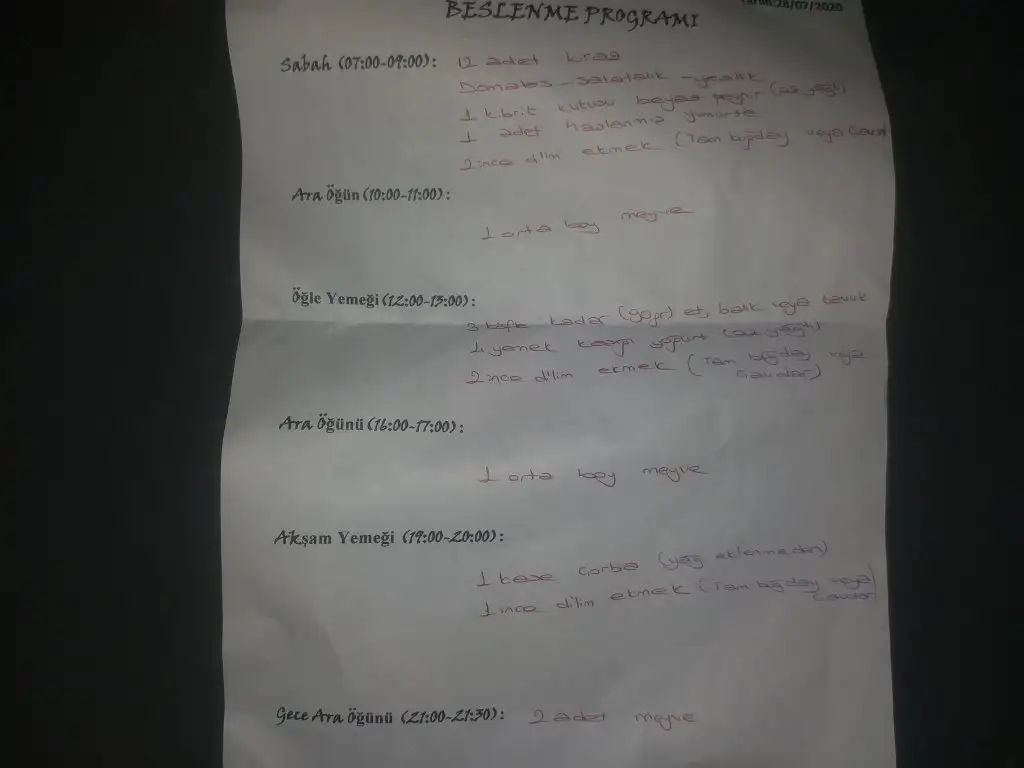 BESLENME PROGRAMI
28/07/2020
Sabah (07:00-09:00): 12 adet kiraz
Domates - salatalık - yeşillik
1 kibrit kutusu beyaz peynir (az yağlı)
1 adet haşlanmış yumurta
2 ince dilim ekmek (Tam buğday veya
Ara Öğün (10:00-11:00):
1 orta boy meyve
Öğle Yemeği (12:00-13:00):
3 köfte kadar (90gr) et, balık veya tavuk
1 yemek kaşığı yoğurt (az yağlı)
2 ince dilim ekmek (Tam buğday veya
Çavdar)
Ara Öğünü (16:00-17:00):
1 orta boy meyve
Akşam Yemeği (19:00-20:00):
1 kase çorba (yağ eklenmeden)
1 ince dilim ekmek (Tam buğday veya
Çavdar
Gece Ara Öğünü (21:00-21:30): 2 adet meyve